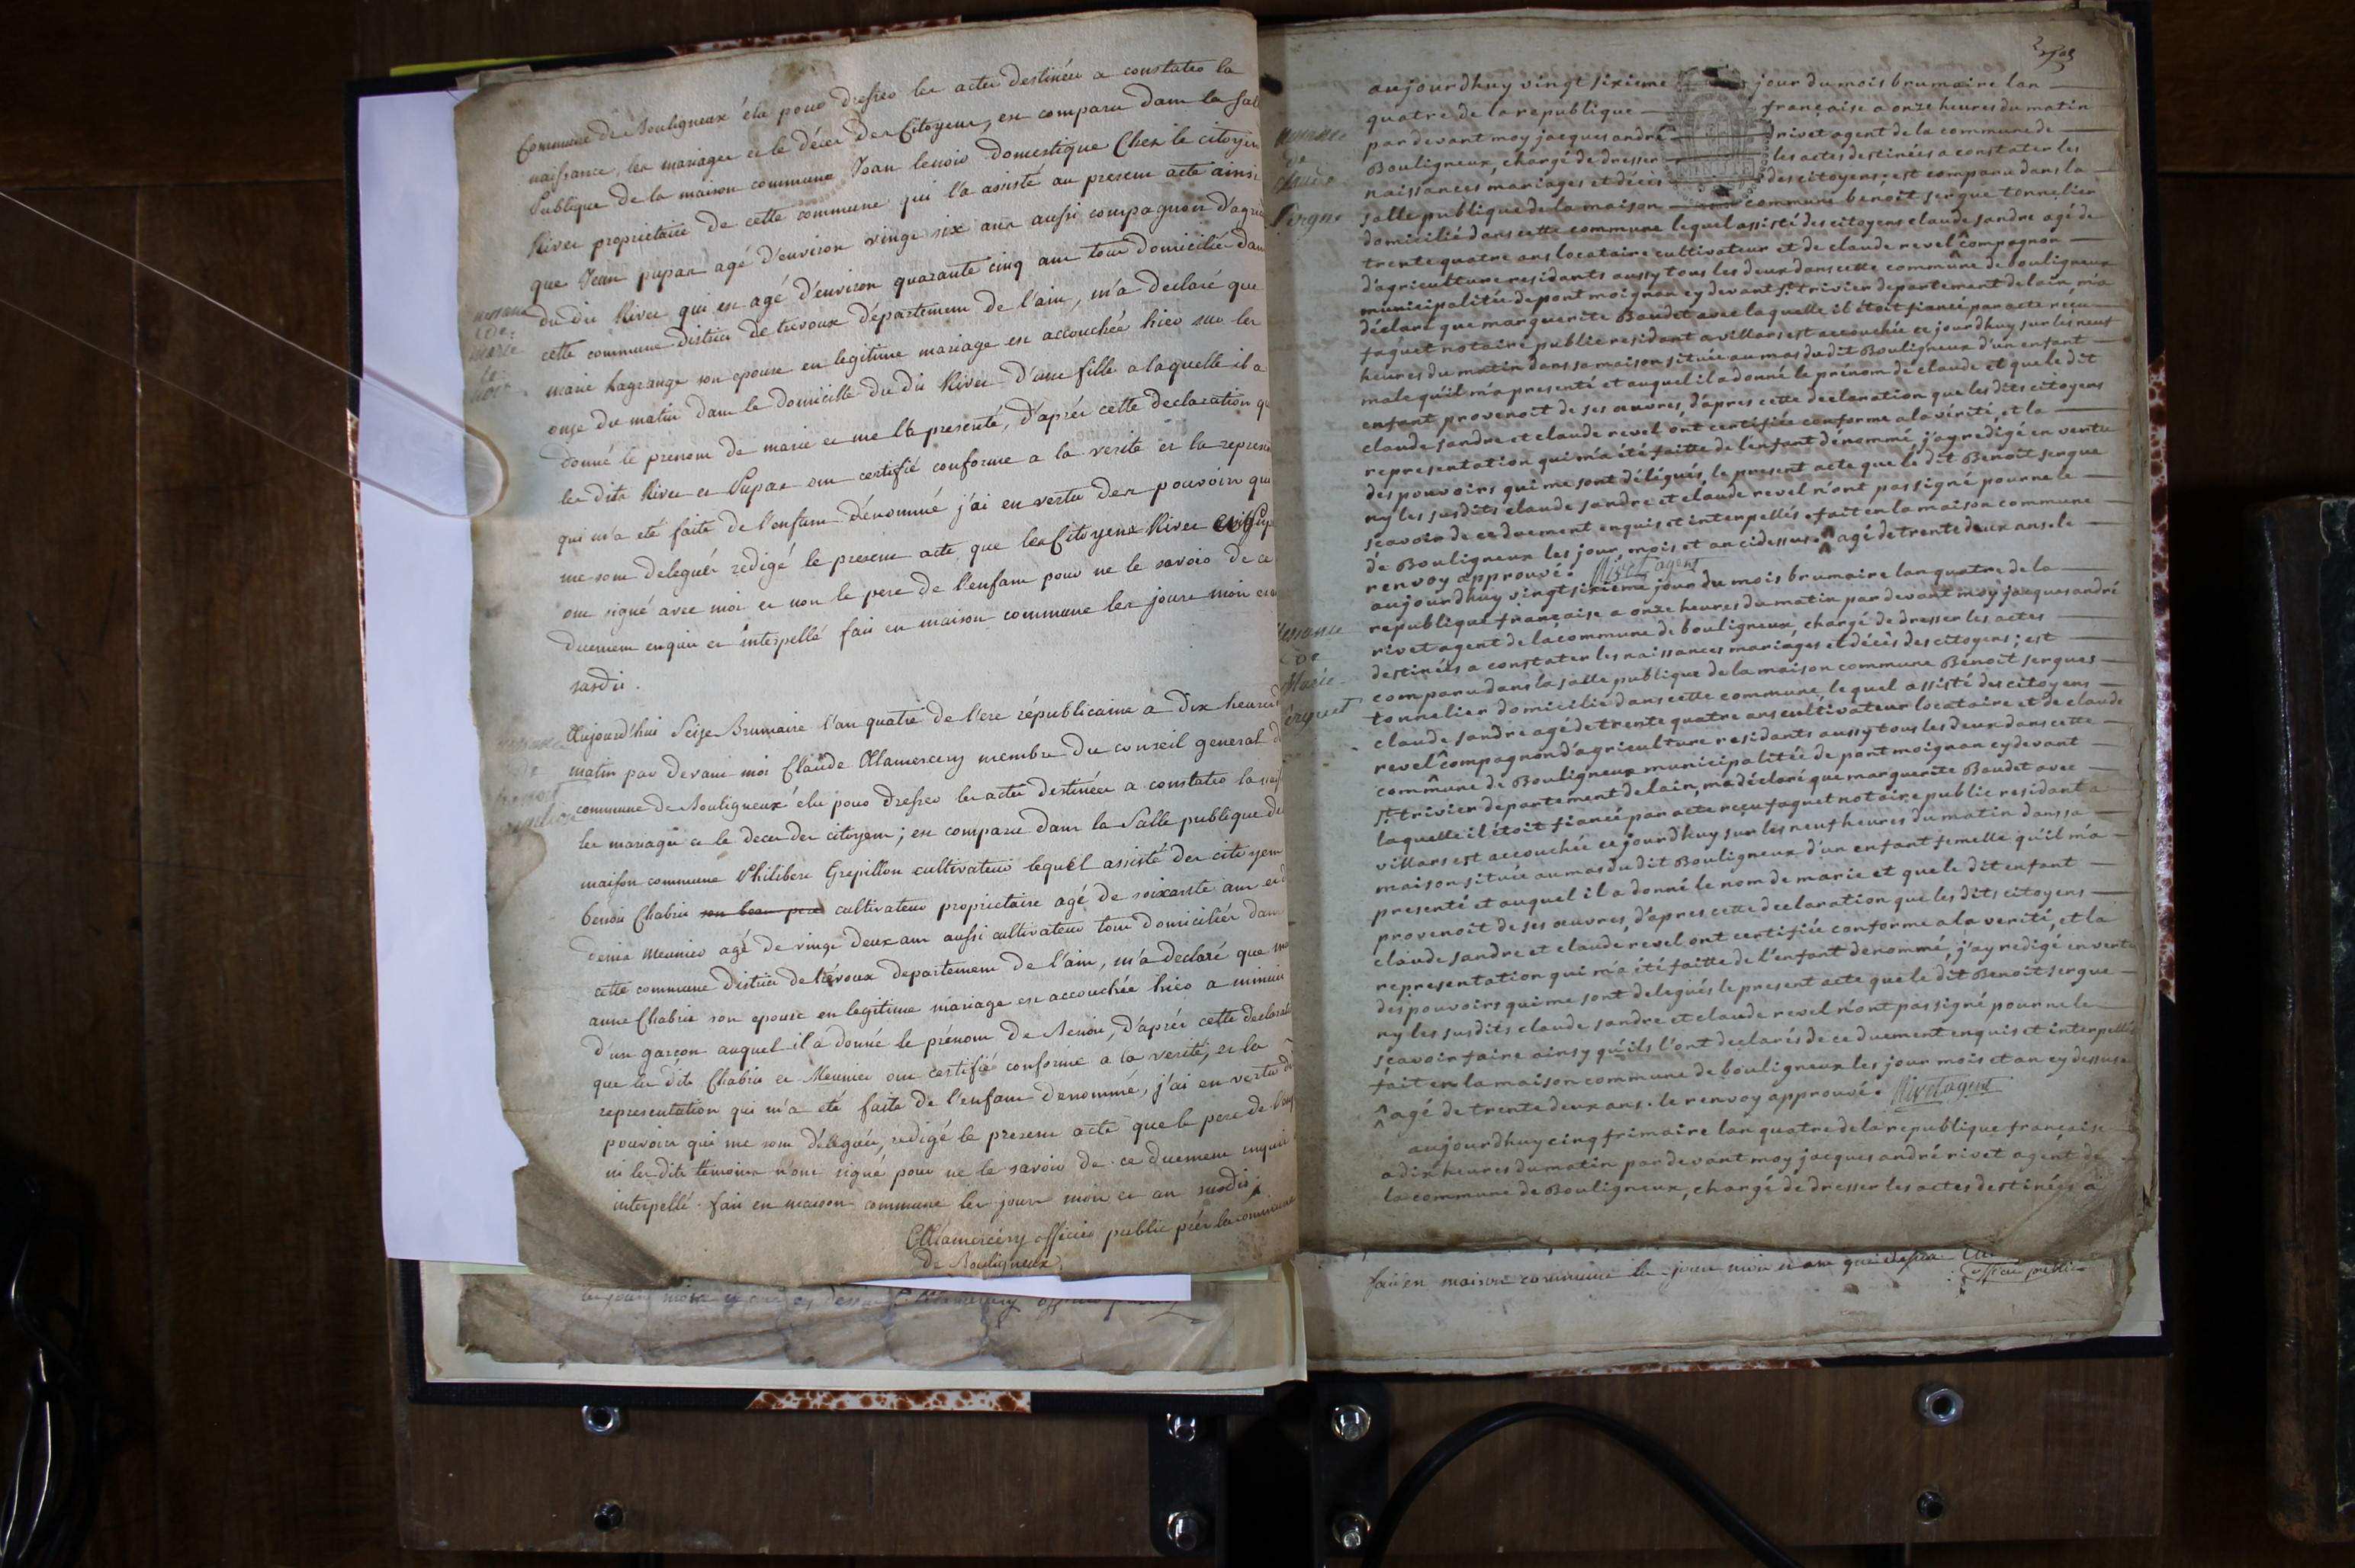 Commune de Bouligneux élu pour dresser les actes destinées a constater la
naissance, les mariages et le décès des Citoyens, est comparu dans la sal
Publique de la maison commune Jean lenoir domestique Chez le citoyen
Rivet proprietaire de cette commune qui l'a assisté au present acte ainsi
que Jean pupat agé d'environ vingt six ans aussi compagnon d'agri
du dit Rivet qui est agé d'environ quarante cinq ans tous domiciliés dan
cette commune district de trevoux département de l'ain, m'a declaré que
marie Lagrange son epouse en legitime mariage est accouchée hier sur les
onze du matin dans le domicille du dit Rivet d'une fille a laquelle il a
donné le prenom de marie et me l'a presenté, d'après cette declaration q
les dits Rivet et Pupat ont certifié conforme a la verité et la represen
qui m'a eté faite de l'enfant dénommé j'ai en vertu des pouvoirs qui
me sont delegués redigé le present acte que les Citoyens Rivet
ont signé avec moi et non le pere de l'enfant pour ne le savoir de ce
duement enquis et interpellé fait en maison commune les jours mois et
susdit.
Aujourd'hui Seize Brumaire l'an quatre de l'ere républicaine a dix heures d
matin par devant moi Claude Mamercery membre du conseil general d
commune de Bouligneux élu pour dresser les actes destinées a constater la nais
les mariages et le deces des citoyens ; est comparu dans la Salle publique de
maison commune Philibert Grepillon cultivateur lequel assisté des citoyens
benoit Chabrie son beau pere cultivateur proprietaire agé de soixante ans et
denis Meunier agé de vingt deux ans aussi cultivateur tous domiciliés dans
cette commune district de trévoux departement de l'ain, m'a declaré que
anne Chabrie son epouse en legitime mariage est accouchée hier a minuit
d'un garçon auquel il a donné le prénom de Benoit, d'après cette declarat
que les dits Chabrie et Meunier ont certifié conforme a la verité, et la
representation qui m'a eté faite de l'enfant denommé, j'ai en vertu d
pouvoirs qui me sont délégués, redigé le present acte que le pere de l'enf
ni les dits témoins n'ont signé pour ne le savoir de ce duement enquis
interpellé. fait en maison commune les jour mois et an susdit
C Mamercery officier public pour la commune
de Bouligneux
naissance
de
Claude
Sergue
aujourdhuy vingt sixieme jour du mois brumaire lan
quatre de la republique française a onze heures du matin
par devant moy jacques andré rivet agent de la commune de
Bouligneux, chargé de dresser les actes destinées a constater les
naissances mariages et décès des citoyens ; est comparu dans la
salle publique de la maison commune benoit sergue tonnelier
domicilié dans cette commune lequel assisté des citoyens claude sandre agé de
trente quatre ans locataire cultivateur et de claude revel ^ compagnon
d'agriculture residants aussy tous les deux dans cette commune de bouligneux
municipalitée de pont moignan cy devant st. trivier departement delain, m'a
déclaré que marguerite Baudet avec laquelle il étoit fiancé par acte reçu
faquet notaire public residant a villars est accouchée ce jourdhuy sur les neuf
heures du matin dans sa maison située au mas du dit Bouligneux d'un enfant
male qu'il m'a presenté et auquel il a donné le prénom de claude et que le dit
enfant provenoit de ses œuvres, d'apres cette declaration que les dits citoyens
claude sandre et claude revel ont certifiée conforme a la vérité, et la
representation qui m'a été faitte de l'enfant dénommé, j'ay redigé en vertu
des pouvoirs qui me sont délégués, le present acte que le dit Benoit sergue
ny les susdits claude sandre et claude revel n'ont pas signé pour ne le
sçavoir de ce duement enquis et interpellés. fait en la maison commune
de Bouligneux les jour, mois et an cidessus. ^ agé de trente deux ans. le
renvoy approuvé. Rivet agent
Nessance
de
Marie
sergues
aujourdhuy vingt sixieme jour du mois brumaire lan quatre de la
republique française a onze heures du matin par devant moy jacques andré
rivet agent de la commune de bouligneux, chargé de dresser les actes
destinées a constater les naissances mariages et décès des citoyens ; est
comparu dans la salle publique de la maison commune Benoit sergues
tonnelier domicilié dans cette commune, lequel assisté des citoyens
claude sandre agé de trente quatre ans cultivateur locataire et de claude
revel ^ compagnon d'agriculture residants aussy tous les deux dans cette
commune de Bouligneux municipalitée de pont moignan cy devant
st. trivier departement delain, ma déclaré que marguerite Baudet avec
laquelle il étoit fiancé par acte reçu faquet notaire public residant a
villars est accouchée ce jourdhuy sur les neuf heures du matin dans sa
maison située au mas du dit Bouligneux d'un enfant femelle qu'il m'a
presenté et auquel il a donné le nom de marie et que le dit enfant
provenoit de ses œuvres, d'apres cette declaration que les dits citoyens
claude sandre et claude revel ont certifiée conforme a la verité, et la
representation qui m'a été faitte de l'enfant denommé, j'ay redigé en vertu
des pouvoirs qui me sont delegués le present acte que le dit Benoit sergue
ny les susdits claude sandre et claude revel n'ont pas signé pour ne le
sçavoir faire ainsy qu'ils l'ont declarés de ce duement enquis et interpellés
fait en la maison commune de bouligneux les jour mois et an cy dessus.
^ agé de trente deux ans. le renvoy approuvé. Rivet agent
aujourdhuy cinq frimaire lan quatre de la republique française
a dix heures du matin par devant moy jacques andré rivet agent de
la commune de Bouligneux, chargé de dresser les actes destinées a
fait en maison commune les jour mois et an que dessus
officier public